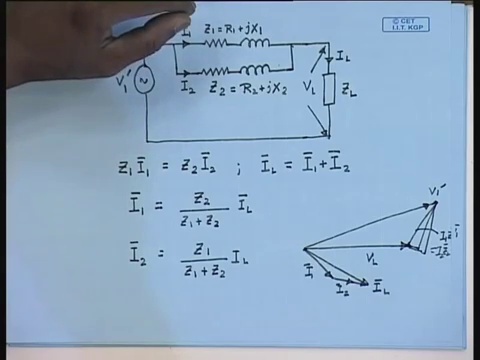 © CET
I.I.T. KGP
I₁ Z₁ = R₁ + jX₁
I_L
V₁′
I₂ Z₂ = R₂ + jX₂
V_L Z_L
Z₁ Ī₁ = Z₂ Ī₂ ; Ī_L = Ī₁ + Ī₂
Ī₁ = Z₂ / (Z₁ + Z₂) Ī_L
Ī₂ = Z₁ / (Z₁ + Z₂) I_L
V₁′
V_L
Ī₁
Ī₂
Ī_L